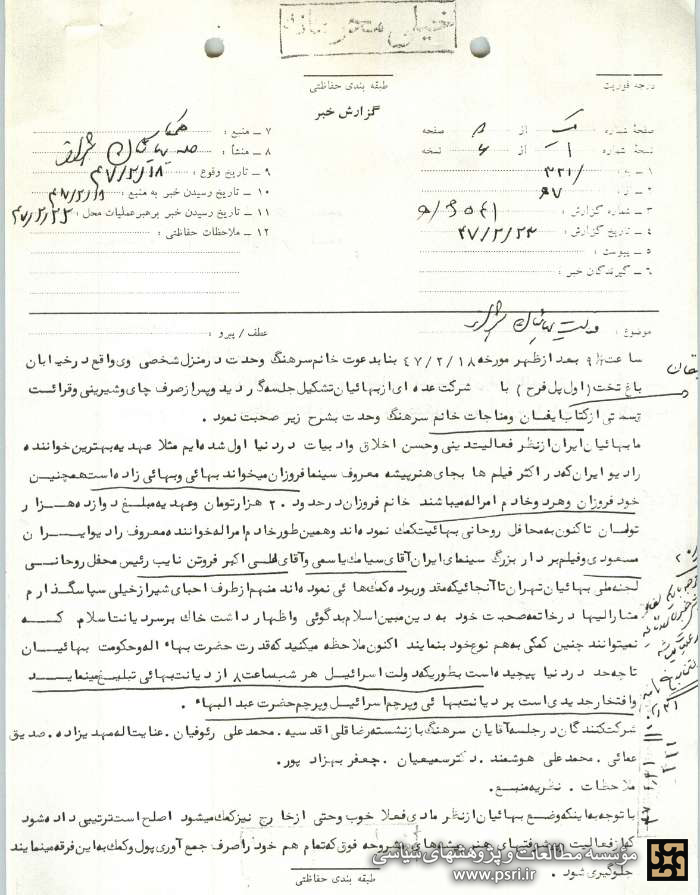 خیلی محرمانه
درجه فوریت
طبقه بندی حفاظتی
گزارش خبر
صفحه شماره یک از صفحه
نسخه شماره ۱ از ۶ نسخه
۱ ـ به : ۳۴۱
۲ ـ از : ۹۷
۳ ـ شماره گزارش :
۴ ـ تاریخ گزارش : ۴۷/۲/۲۴
۵ ـ پیوست :
۶ ـ گیرندگان خبر :
۷ ـ منبع :
۸ ـ منشأ :
۹ ـ تاریخ وقوع : ۴۷/۲/۱۸
۱۰ ـ تاریخ رسیدن خبر به منبع :
۱۱ ـ تاریخ رسیدن خبر برهبر عملیات محل : ۴۷/۲/۲۳
۱۲ ـ ملاحظات حفاظتی :
موضوع : فعالیت بهائیان شیراز
عطف / پیرو :
ساعت بعد از ظهر مورخه ۴۷/۲/۱۸ بنا بدعوت خانم سرهنگ وحدت در منزل شخصی وی واقع در خیابان
باغ تخت (اول پل فرح) با شرکت عده ای از بهائیان تشکیل جلسه گردید و پس از صرف چای و شیرینی و قرائت
قسمتی از کتاب ایقان و مناجات خانم سرهنگ وحدت بشرح زیر صحبت نمود .
ما بهائیان ایران از نظر فعالیت دینی و حسن اخلاق و ادبیات در دنیا اول شده ایم مثلا عهدیه بهترین خواننده
رادیو ایران که در اکثر فیلم ها بجای هنرپیشه معروف سینما فروزان میخواند بهائی و بهائی زاده است همچنین
خود فروزان و هر دو خادم امراله میباشند خانم فروزان در حدود ۲۰ هزار تومان و عهدیه مبلغ دوازده هزار
تومان تاکنون به محافل روحانی بهائیت کمک نموده اند و همین طور خادم امراله خواننده معروف رادیو ایران
مسعودی و فیلم بردار بزرگ سینمای ایران آقای سیامک یاسمی و آقای علی اکبر فروتن نایب رئیس محفل روحانی
لجنه ملی بهائیان تهران تا آنجائیکه مقدور بوده کمک هائی نموده اند منهم از طرف احبای شیراز خیلی سپاسگذارم
مشارالیها در خاتمه صحبت خود به دین مبین اسلام بدگوئی و اظهار داشت خاک بر سر دیانت اسلام که
نمیتوانند چنین کمکی به هم نوع خود بنمایند اکنون ملاحظه میکنید که قدرت حضرت بهاءاله و حکومت بهائیان
تا چه حد در دنیا پیچیده است بطوریکه دولت اسرائیل هر شب ساعت ۸ از دیانت بهائی تبلیغ مینماید
و افتخار جدیدی است بر دیانت بهائی و پرچم اسرائیل و پرچم حضرت عبدالبهاء .
شرکت کنندگان در جلسه آقایان سرهنگ بازنشسته رضاقلی اقدسیه . محمدعلی رئوفیان . عنایت اله مهدیزاده . صدیق
عمائی . محمدعلی هوشمند . دکتر سمیعیان . جعفر بهزاد پور .
ملاحظات . نظریه منبع .
با توجه به اینکه وضع بهائیان از نظر مادی فعلا خوب و حتی از خارج نیز کمک میشود اصلح است ترتیبی داده شود
که از فعالیت و پیشرفتهای هنرپیشه های مشروحه فوق که تمام هم خود را صرف جمع آوری پول و کمک به این فرقه مینمایند
جلوگیری شود .
طبقه بندی حفاظتی
موسسه مطالعات و پژوهشهای سیاسی
www.psri.ir